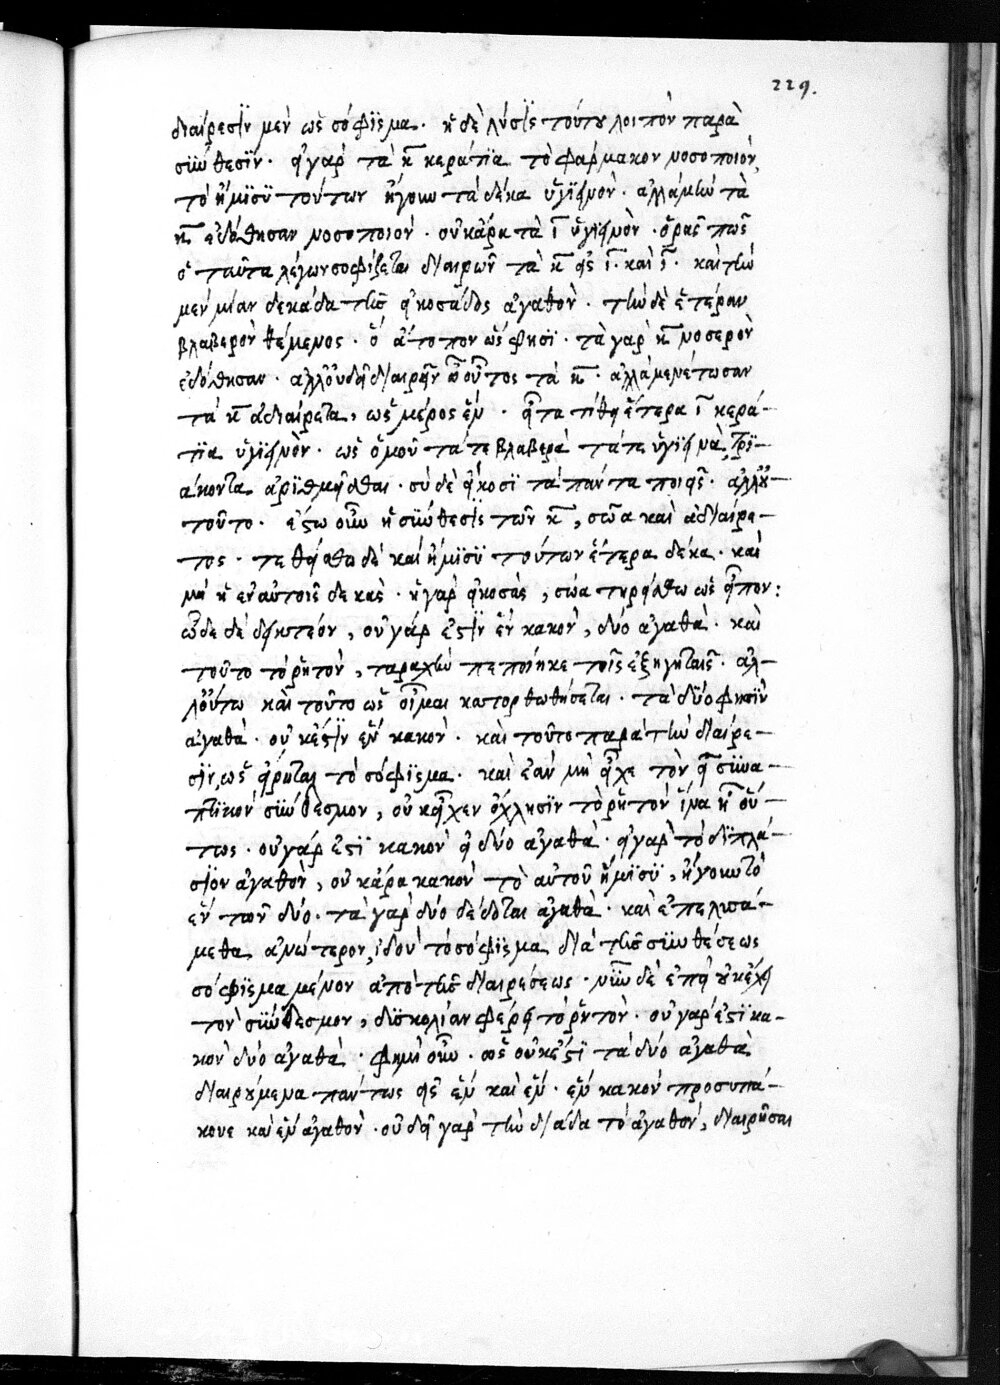 229.
διαίρεσϊν μὲν ὡς σόφϊσμα · ἡ δὲ λύσϊς τούτου λοιπὸν παρὰ
σϋνθεσϊν · εἰ γὰρ τὰ κ̄ κεράτϊα τὸ φάρμακον νοσοποιὸν,
τὸ ἥμϊσϋ τούτων ἤγουν τὰ δέκα ὑγϊεινὸν · ἀλλὰ μὴν τὰ
κ̄ ἐδόθησαν νοσοποιὸν · οὐκ ἄρα τὰ ῑ ὑγϊεινὸν · ὅρας πῶς
ὁ ταῦτα λέγων σοφίζεται διαιρῶν τὰ κ̄ εἰς ῑ · καὶ ῑ · καὶ τὴν
μὲν μίαν δεκάδα τῆς εἰκοσάδος ἀγαθὸν · τὴν δὲ ἑτέραν
βλαβερὸν θέμενος · ὃ ἄτοπον ὥς φησϊ · τὰ γὰρ κ̄ νοσερὸν
ἐδόθησαν · ἀλλ' οὐ δεῖ διαιρεῖν οὕτως τὰ κ̄ · ἀλλὰ μενέτωσαν
τὰ κ̄ ἀδιαίρετα, ὡς μέρος ἓν · εἶτα τίθει ἕτερα ῑ κερά-
τϊα ὑγϊεινὸν · ὡς ὁμοῦ τά τε βλαβερὰ τά τε ὑγϊεινὰ, τρϊ-
άκοντα ἀρϊθμεῖσθαι · σὺ δὲ εἴκοσϊ τὰ πάντα ποιεῖς · ἀλλ' οὐ
τοῦτο · ἔστω οὖν ἡ σϋνθεσϊς τῶν κ̄, σῶα καὶ ἀδιαίρε-
τος · τεθείσθω δὲ καὶ ἥμϊσϋ τούτων ἕτερα δέκα · καὶ
μὴ ἡ ἐν αὐτοῖς δεκὰς · ἡ γὰρ εἰκοσὰς, σώα τηρείσθω ὡς εἶπον :
ὧδε δὲ δεικτέον, οὐ γάρ ἐστϊν ἓν κακὸν, δύο ἀγαθὰ · καὶ
τοῦτο τὸ ῥητὸν, ταραχὴν πεποίηκε τοῖς ἐξηγηταῖς · ἀλ-
λ' οὕτω καὶ τοῦτο ὡς οἶμαι κατορθωθήσεται · τὰ δύο φησϊν
ἀγαθὰ · οὐκ ἔστϊν ἓν κακὸν · καὶ τοῦτο παρὰ τὴν διαίρε-
σϊν, ὡς εἴρηται τὸ σόφϊσμα · καὶ ἐὰν μὴ εἶχε τὸν εἰ σϋνα-
πτϊκὸν σϋνδεσμον, οὐκ εἶχεν ὄχλησϊν τὸ ῥητὸν ἵνα ἦ οὕ-
τως · οὐ γάρ ἐστϊ κακὸν εἰ δύο ἀγαθὰ · εἰ γὰρ τὸ διπλά-
σϊον ἀγαθὸν, οὐκ ἄρα κακὸν τὸ αὐτοῦ ἥμϊσϋ, ἤγουν τὸ
ἓν τῶν δύο · τὰ γὰρ δύο δέδοται ἀγαθὰ · καὶ ἐπελυσά-
μεθα ἀνώτερον, ἰδοὺ τὸ σόφϊσμα διὰ τῆς σϋνθέσεως
σόφϊσμα μένον ἀπὸ τῆς διαιρέσεως · νῦν δὲ ἐπεὶ οὐκ ἔχει
τὸν σϋνδεσμον, δϋσκολίαν φέρει τὸ ῥητὸν · οὐ γάρ ἐστϊ κα-
κὸν δύο ἀγαθὰ · φημὶ οὖν · ὡς οὐκ ἔστϊ τὰ δύο ἀγαθὰ
διαιρούμενα πάντως εἰς ἓν καὶ ἓν · ἓν κακὸν προσυπά-
κουε καὶ ἓν ἀγαθὸν · οὐ δεῖ γὰρ τὴν δϊάδα τὸ ἀγαθὸν, διαιρῆσαι